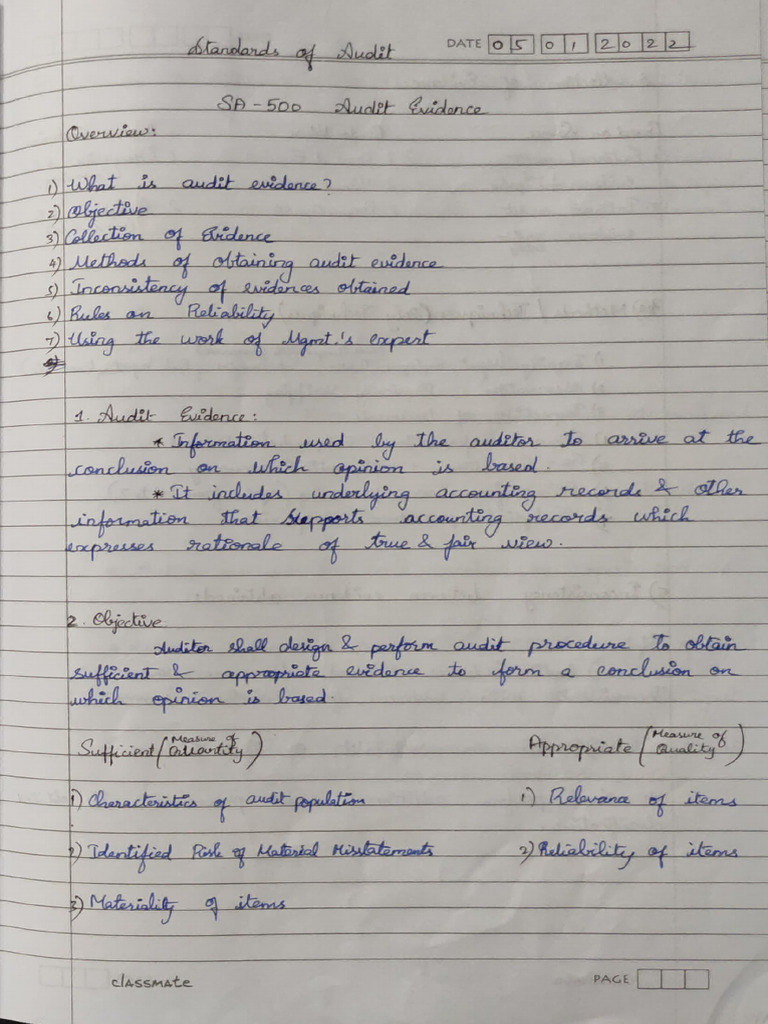 Standards of Audit DATE 05 01 2022
SA-500 Audit Evidence
Overview:
1) What is audit evidence?
2) Objective
3) Collection of Evidence
4) Methods of obtaining audit evidence
5) Inconsistency of evidences obtained
6) Rules on Reliability
7) Using the work of Mgmt.'s expert
1. Audit Evidence:
* Information used by the auditor to arrive at the
conclusion on which opinion is based.
* It includes underlying accounting records & other
information that supports accounting records which
expresses rationale of true & fair view.
2. Objective
Auditor shall design & perform audit procedure to obtain
sufficient & appropriate evidence to form a conclusion on
which opinion is based.
Sufficient (Measure of Quantity) Appropriate (Measure of Quality)
1) Characteristics of audit population 1) Relevance of items
2) Identified Risk of Material Misstatements 2) Reliability of items
3) Materiality of items
classmate PAGE